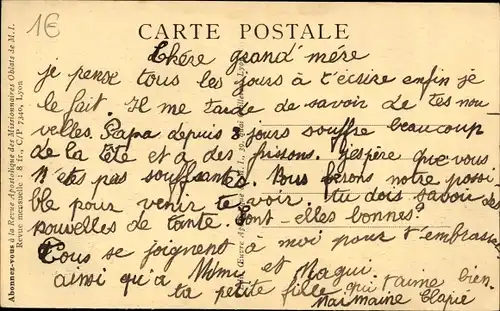 1€
CARTE POSTALE
Chére grand' mére
je pense tous les jours à t'écrire enfin je
le fait. Il me tarde de savoir de tes nou
velles. Papa depuis 3 jours souffre beaucoup
de la tête et a des frissons. j'espère que vous
n'etes pas souffsantes. Nous ferons notre possi
ble pour venir te voir. tu dois savoir des
nouvelles de tante. Sont-elles bonnes?
Tous se joignent à moi pour t'embrasser
ainsi qu'à Mimi et Magui.
ta petite fille qui t'aime bien.
Abonnez-vous à la Revue Apostolique des Missionnaires Oblats de M.I.
Revue mensuelle : 8 fr., C/P 7340, Lyon